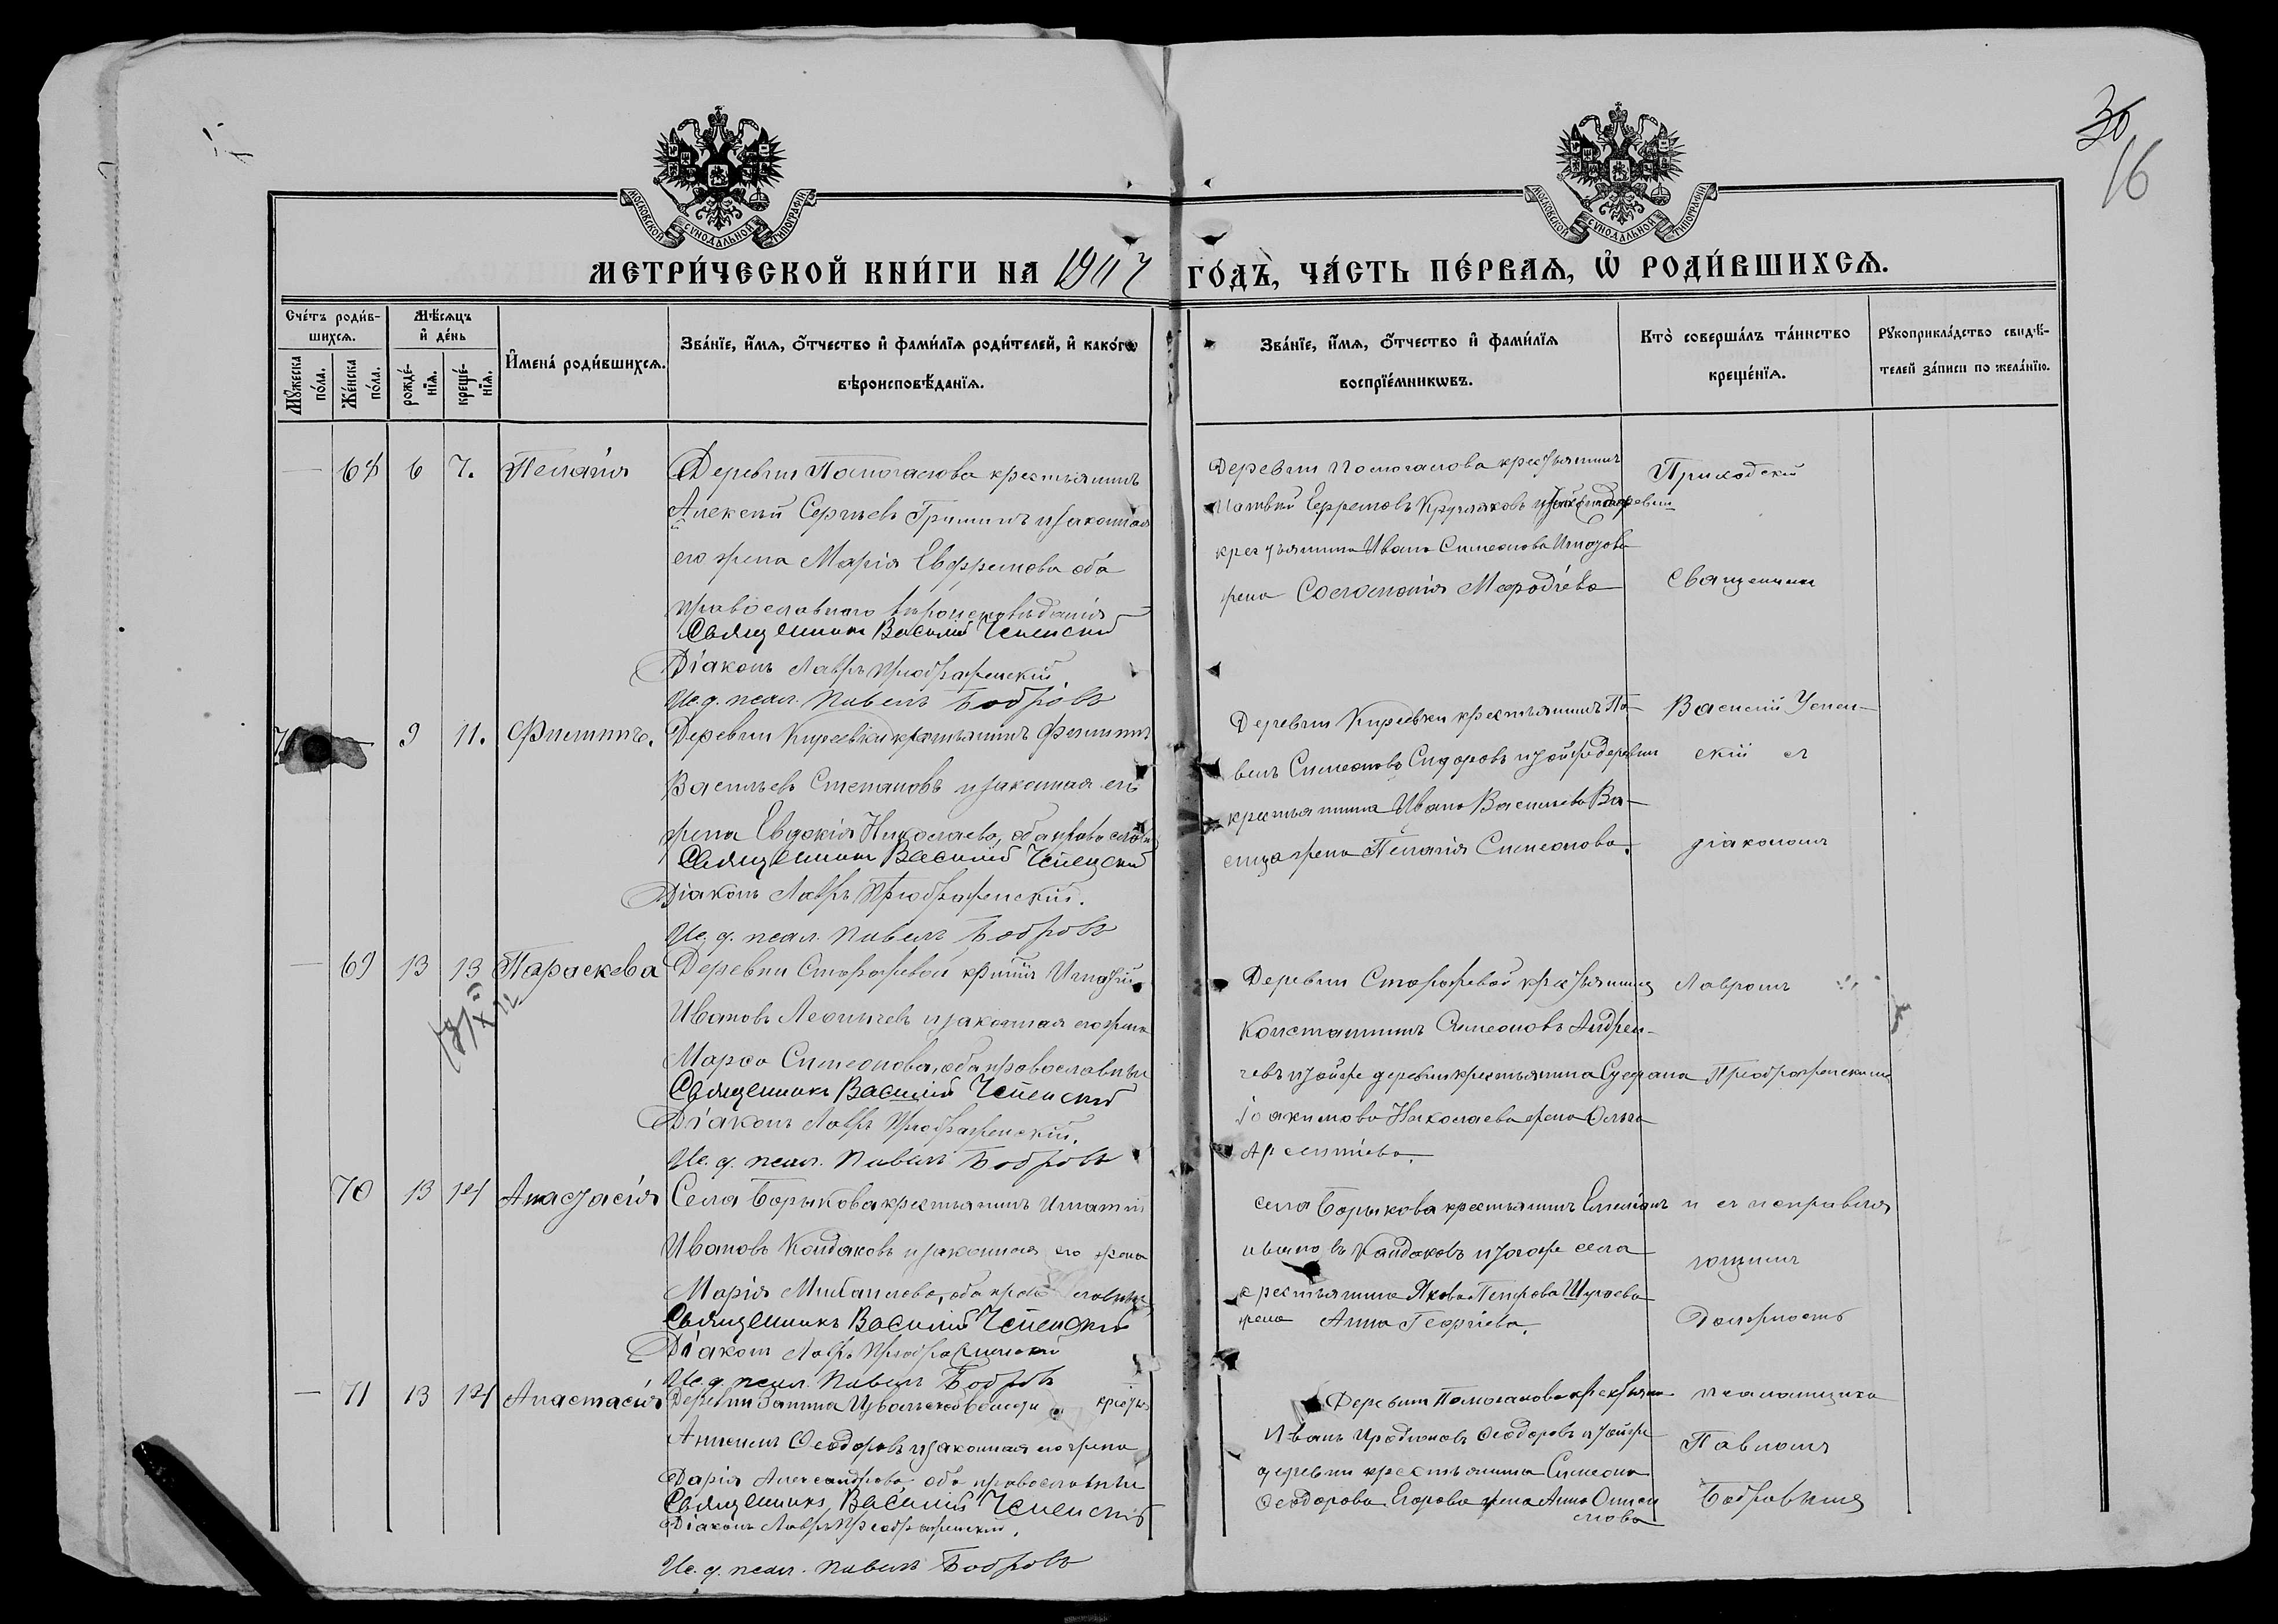 30
16
МОСКОВСКОЙ СѴНОДАЛЬНОЙ ТИПОГРАФІИ
МОСКОВСКОЙ СѴНОДАЛЬНОЙ ТИПОГРАФІИ
МЕТРИ́ЧЕСКОЙ КНИ́ГИ НА 1917 ГО́ДЪ, ЧА́СТЬ ПЕ́РВАѦ, Ѡ҆ РОДИ́ВШИХСѦ.
Сче́тъ роди́в-
шихсѧ.
Мꙋ́жеска по́ла.
Же́нска по́ла.
Мѣ́сѧцъ
и҆ де́нь
рожде́-
нїѧ.
креще́-
нїѧ.
И҆мена̀ роди́вшихсѧ.
Зва́нїе, и҆́мѧ, ѻ҆́тчество и҆ фами́лїѧ роди́телей, и҆ како́гѡ
вѣроисповѣ́данїѧ.
Зва́нїе, и҆́мѧ, ѻ҆́тчество и҆ фами́лїѧ
воспрїе́мникѡвъ.
Кто̀ соверша́лъ та́инство
креще́нїѧ.
Рꙋкоприкла́дство свидѣ́-
телей за́писи по жела́нїю.
— 68 6 7. Пелагія
Деревни Помогалова крестьянинъ
Алексѣй Сергѣевъ Гришинъ и законная
его жена Марія Евфремова оба
православнаго вѣроисповѣданія
Священникъ Василій Успенскій
Діаконъ Лавръ Преображенскій
Ис. д. псал. Павелъ Бобровъ
Деревни Помогалова крестьянинъ
Матвѣй Ефремовъ Кругляковъ и той же деревни
крестьянина Ивана Симеонова
жена Соломонія Меѳодіева
Приходскій
Священникъ
9 11. Филиппъ.
Деревни Киреевки крестьянинъ Филиппъ
Васильевъ Степановъ и законная его
жена Евдокія Николаева, оба православн
Священникъ Василій Успенскій
Діаконъ Лавръ Преображенскій.
Ис. д. псал. Павелъ Бобровъ
Деревни Киреевки крестьянинъ Па-
велъ Симеоновъ Сидоровъ и той же деревни
крестьянина Ивана Васильева Ва-
жена Пелагія Симеонова.
Василій Успен-
скій съ
діакономъ
— 69 13 13 Параскева
Деревни Сторожевой кр-нинъ Игнатій
Ивановъ Леонычевъ и законная его жена
Марѳа Симеонова, оба православные
Священникъ Василій Успенскій
Діаконъ Лавръ Преображенскій.
Ис. д. псал. Павелъ Бобровъ
Деревни Сторожевой крестьянинъ
Константинъ Симеоновъ Андрея-
чевъ и той же деревни крестьянина Стефана
Іоакимова Николаева жена Ольга
Арсентіева.
Лавромъ
Преображенскимъ
70 13 14 Анастасія
Села Борыкова крестьянинъ Игнатій
Ивановъ Кандаковъ и законная его жена
Марія Михаилова, оба православные
Священникъ Василій Успенскій
Діаконъ Лавръ Преображенскій
Ис. д. псал. Павелъ Бобровъ
села Борыкова крестьянинъ Емеліанъ
Ивановъ Кандаковъ и того же села
крестьянина Якова Петрова Шугаева
жена Анна Георгіева.
и съ исправля
ющимъ
Должность
— 71 13 14 Анастасія
Деревни
Ѳеодоровъ и законная его жена
Дарія Александрова оба православные
Священникъ Василій Успенскій
Діаконъ Лавръ Преображенскій.
Ис. д. псал. Павелъ Бобровъ
Деревни Помогалова крестьян
Иванъ Иродіоновъ Ѳеодоровъ и той же
деревни крестьянина Симеона
Ѳеодорова Егорова жена Анна
псаломщика
Павломъ
Бобровымъ